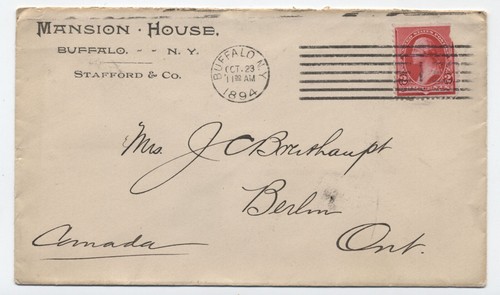 MANSION · HOUSE,
BUFFALO, - - N. Y.
STAFFORD & Co.
BUFFALO, N.Y.
OCT. 23
11 AM
1894
2 2
Mrs. J C Breithaupt
Berlin
Canada Ont.